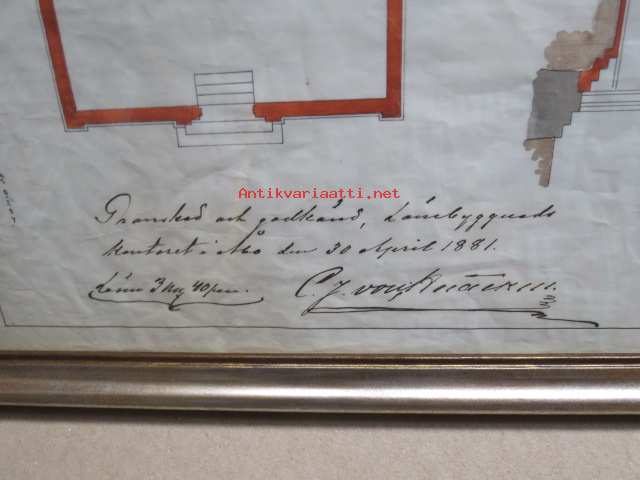 Antikvariaatti.net
Granskad och godkänd, Länebyggnads
kontoret i Åbo den 30 April 1881.
Lösen 3 mk 40 pen.
C. J. von